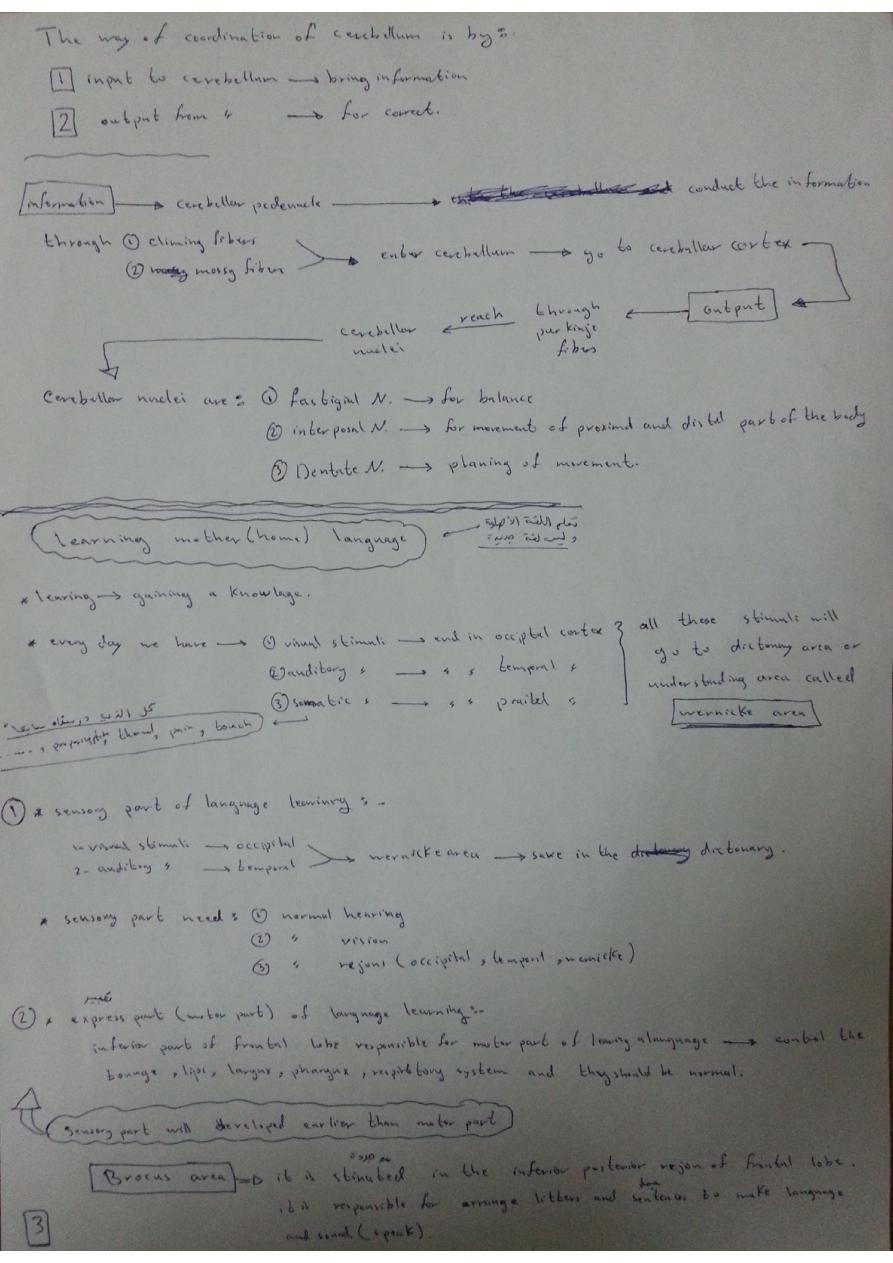 The way of coordination of cerebellum is by:-
1 input to cerebellum → bring information
2 output from " → for correct.
information → cerebellar pedenucle → conduct the information
through ① climing fibers
② mossy fibers → enter cerebellum → go to cerebellar cortex
output → through purkinje fibers reach → cerebellar nuclei
Cerebellar nuclei are: ① fastigial N. → for balance
② interposal N. → for movement of proximal and distal part of the body
③ Dentate N. → planing of movement.
learning mother (home) language ← تعلم اللغة الأصلية
وليس لغة جديدة
* learing → gaining a knowlage.
* every day we have → ① visual stimuli → end in occiptal cortex } all these stimuli will
② auditory " → " " temporal " go to dictonary area or
③ somatic " → " " praitel " understanding area called
wernicke area
, thermal, pain, touch
① * sensory part of language learinry :-
1- visual stimuli → occipital
2- auditory " → temporal → wernicke area → save in the dictonary.
* sensory part need: ① normal hearing
② " vision
③ " rejons (occipital, temporal, wernicke)
تعبير
② * express part (motor part) of language learning:-
inferior part of frontal lobe responsible for motor part of learing alanguage → control the
tounge, lips, larynx, pharynx, respirtory system and they should be normal.
sensory part will developed earlier than motor part
Brocus area ⇒ it is stinuted in the inferior posterior rejon of frontal lobe.
it is responsible for arrange litters and sentences to make language
and sound (speak).
3